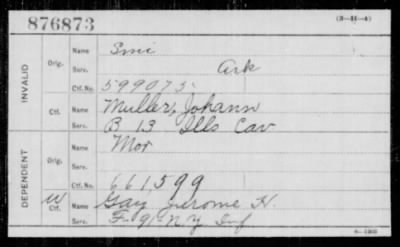 876873
(3-14-4)
INVALID
Orig.
Name Smi
Serv. Ark
Ctf. No. 599075
Ctf.
Name Muller, Johann
Serv. B 13 Ills Cav
DEPENDENT
Orig.
Name Mor
Serv.
Ctf. No. 661,599
W Ctf.
Name Gay Jerome H.
Serv. F 91 N.Y. Inf